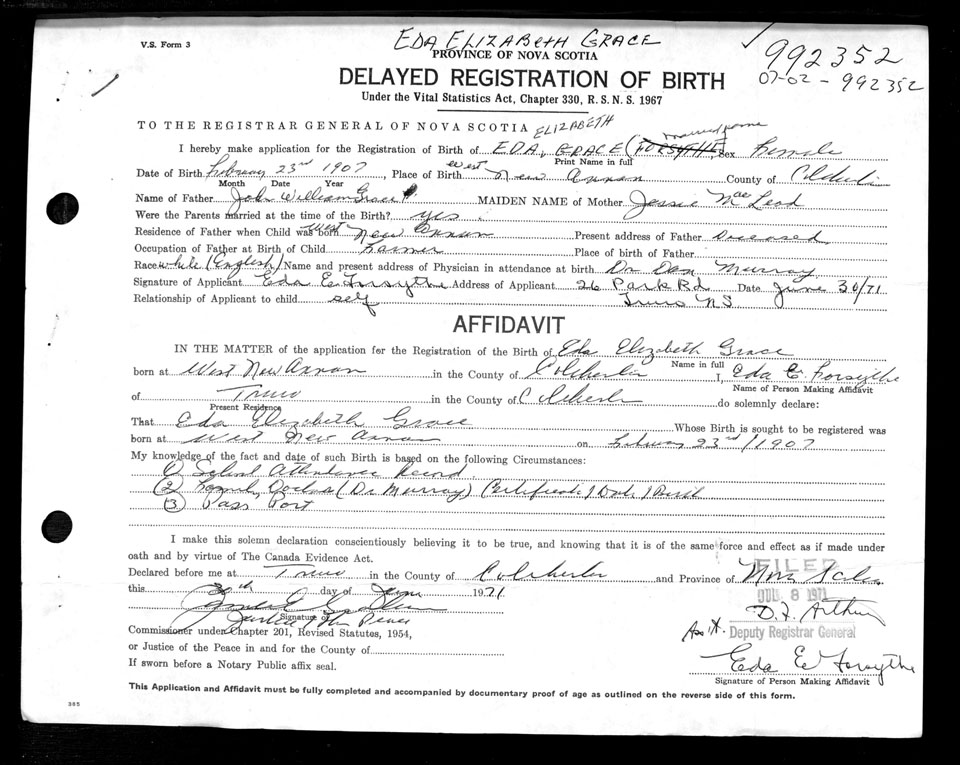 EDA ELIZABETH GRACE
V.S. Form 3
PROVINCE OF NOVA SCOTIA
992352
DELAYED REGISTRATION OF BIRTH
07-02-992352
Under the Vital Statistics Act, Chapter 330, R.S.N.S. 1967
TO THE REGISTRAR GENERAL OF NOVA SCOTIA ELIZABETH married name
I hereby make application for the Registration of Birth of EDA, GRACE (FORSYTHE, Sex Female
Print Name in full
Date of Birth February 23rd 1907, Place of Birth West New Annan County of Colchester
Month Date Year
Name of Father John William Grace MAIDEN NAME of Mother Jessie MacLeod
Were the Parents married at the time of the Birth? yes.
Residence of Father when Child was born West New Annan Present address of Father Deceased
Occupation of Father at Birth of Child farmer Place of birth of Father
Race white (English) Name and present address of Physician in attendance at birth Dr Dan Murray
Signature of Applicant Eda E Forsythe Address of Applicant 26 Park Rd Date June 30/71
Relationship of Applicant to child self Truro NS
AFFIDAVIT
IN THE MATTER of the application for the Registration of the Birth of Eda Elizabeth Grace
Name in full
born at West New Annan in the County of Colchester I, Eda E. Forsythe
Name of Person Making Affidavit
of Truro in the County of Colchester do solemnly declare:
Present Residence
That Eda Elizabeth Grace Whose Birth is sought to be registered was
born at West New Annan on February 23rd/1907
My knowledge of the fact and date of such Birth is based on the following Circumstances:
(1) School Attendance Record
(2) Family Doctor (Dr Murray) Certificate of Date of Birth
(3) Pass Port
I make this solemn declaration conscientiously believing it to be true, and knowing that it is of the same force and effect as if made under
oath and by virtue of The Canada Evidence Act.
FILED
Declared before me at Truro in the County of Colchester and Province of Nova Scotia
this 30th day of June 1971
JUL 8 1971
D.F. Arthur
Signature of
Justice of the Peace
Commissioner under Chapter 201, Revised Statutes, 1954,
Ass't. Deputy Registrar General
or Justice of the Peace in and for the County of
Eda E Forsythe
If sworn before a Notary Public affix seal.
Signature of Person Making Affidavit
This Application and Affidavit must be fully completed and accompanied by documentary proof of age as outlined on the reverse side of this form.
385